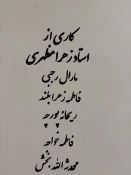 کاری از
استاد زهرا مظهری
مارال رجبی
فاطمه زهرا بلند
ریحانه پورچه
فاطمه خواجه
محدثه الله بخش